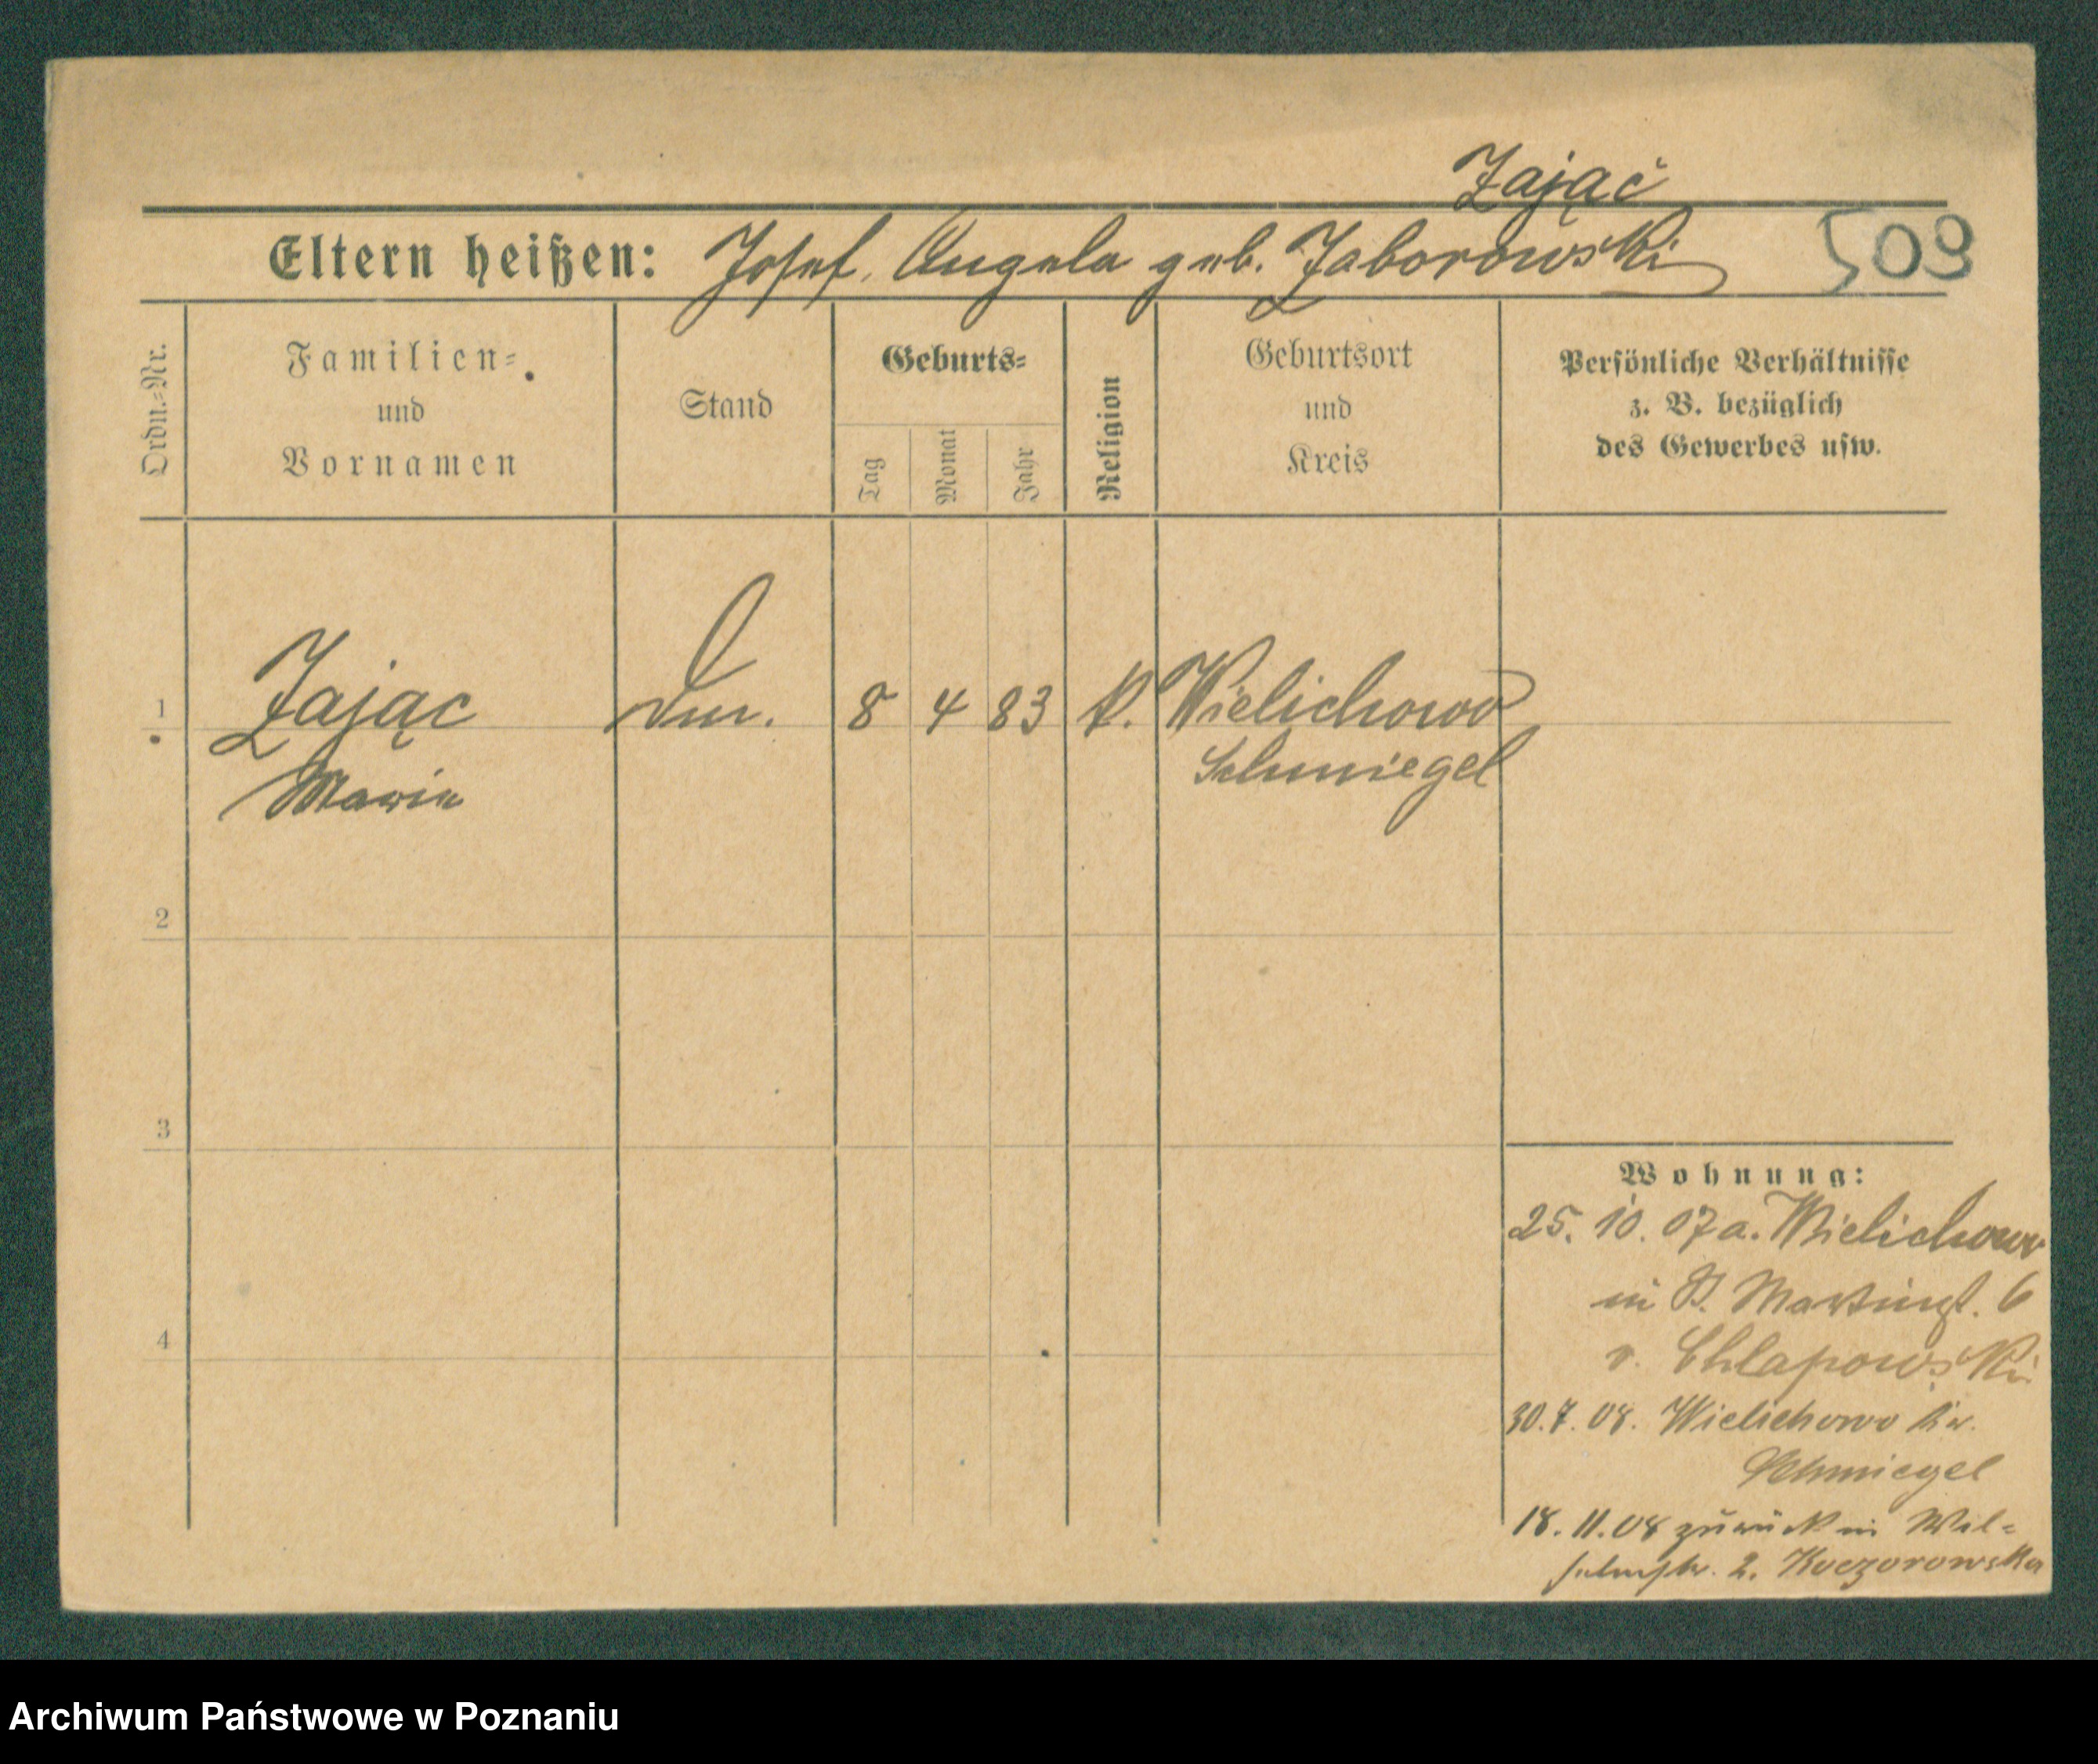 Zająć
Eltern heißen: Josef, Angela geb. Zaborowski 509
Ordn.-Nr.
Familien-
und
Vornamen
Stand
Geburts-
Tag
Monat
Jahr
Religion
Geburtsort
und
Kreis
Persönliche Verhältnisse
z. B. bezüglich
des Gewerbes usw.
1 Zając 8 4 83 K. Wielichowo
Maria Schmiegel
2
3
4
Wohnung:
25. 10. 07 a. Wielichowo
in P. Martinst. 6
v. Chlapowski
30. 7. 08. Wielichowo Kr.
Schmiegel
18. 11. 08 zurück in Wil-
helmstr. 2. Koczorowska
Archiwum Państwowe w Poznaniu